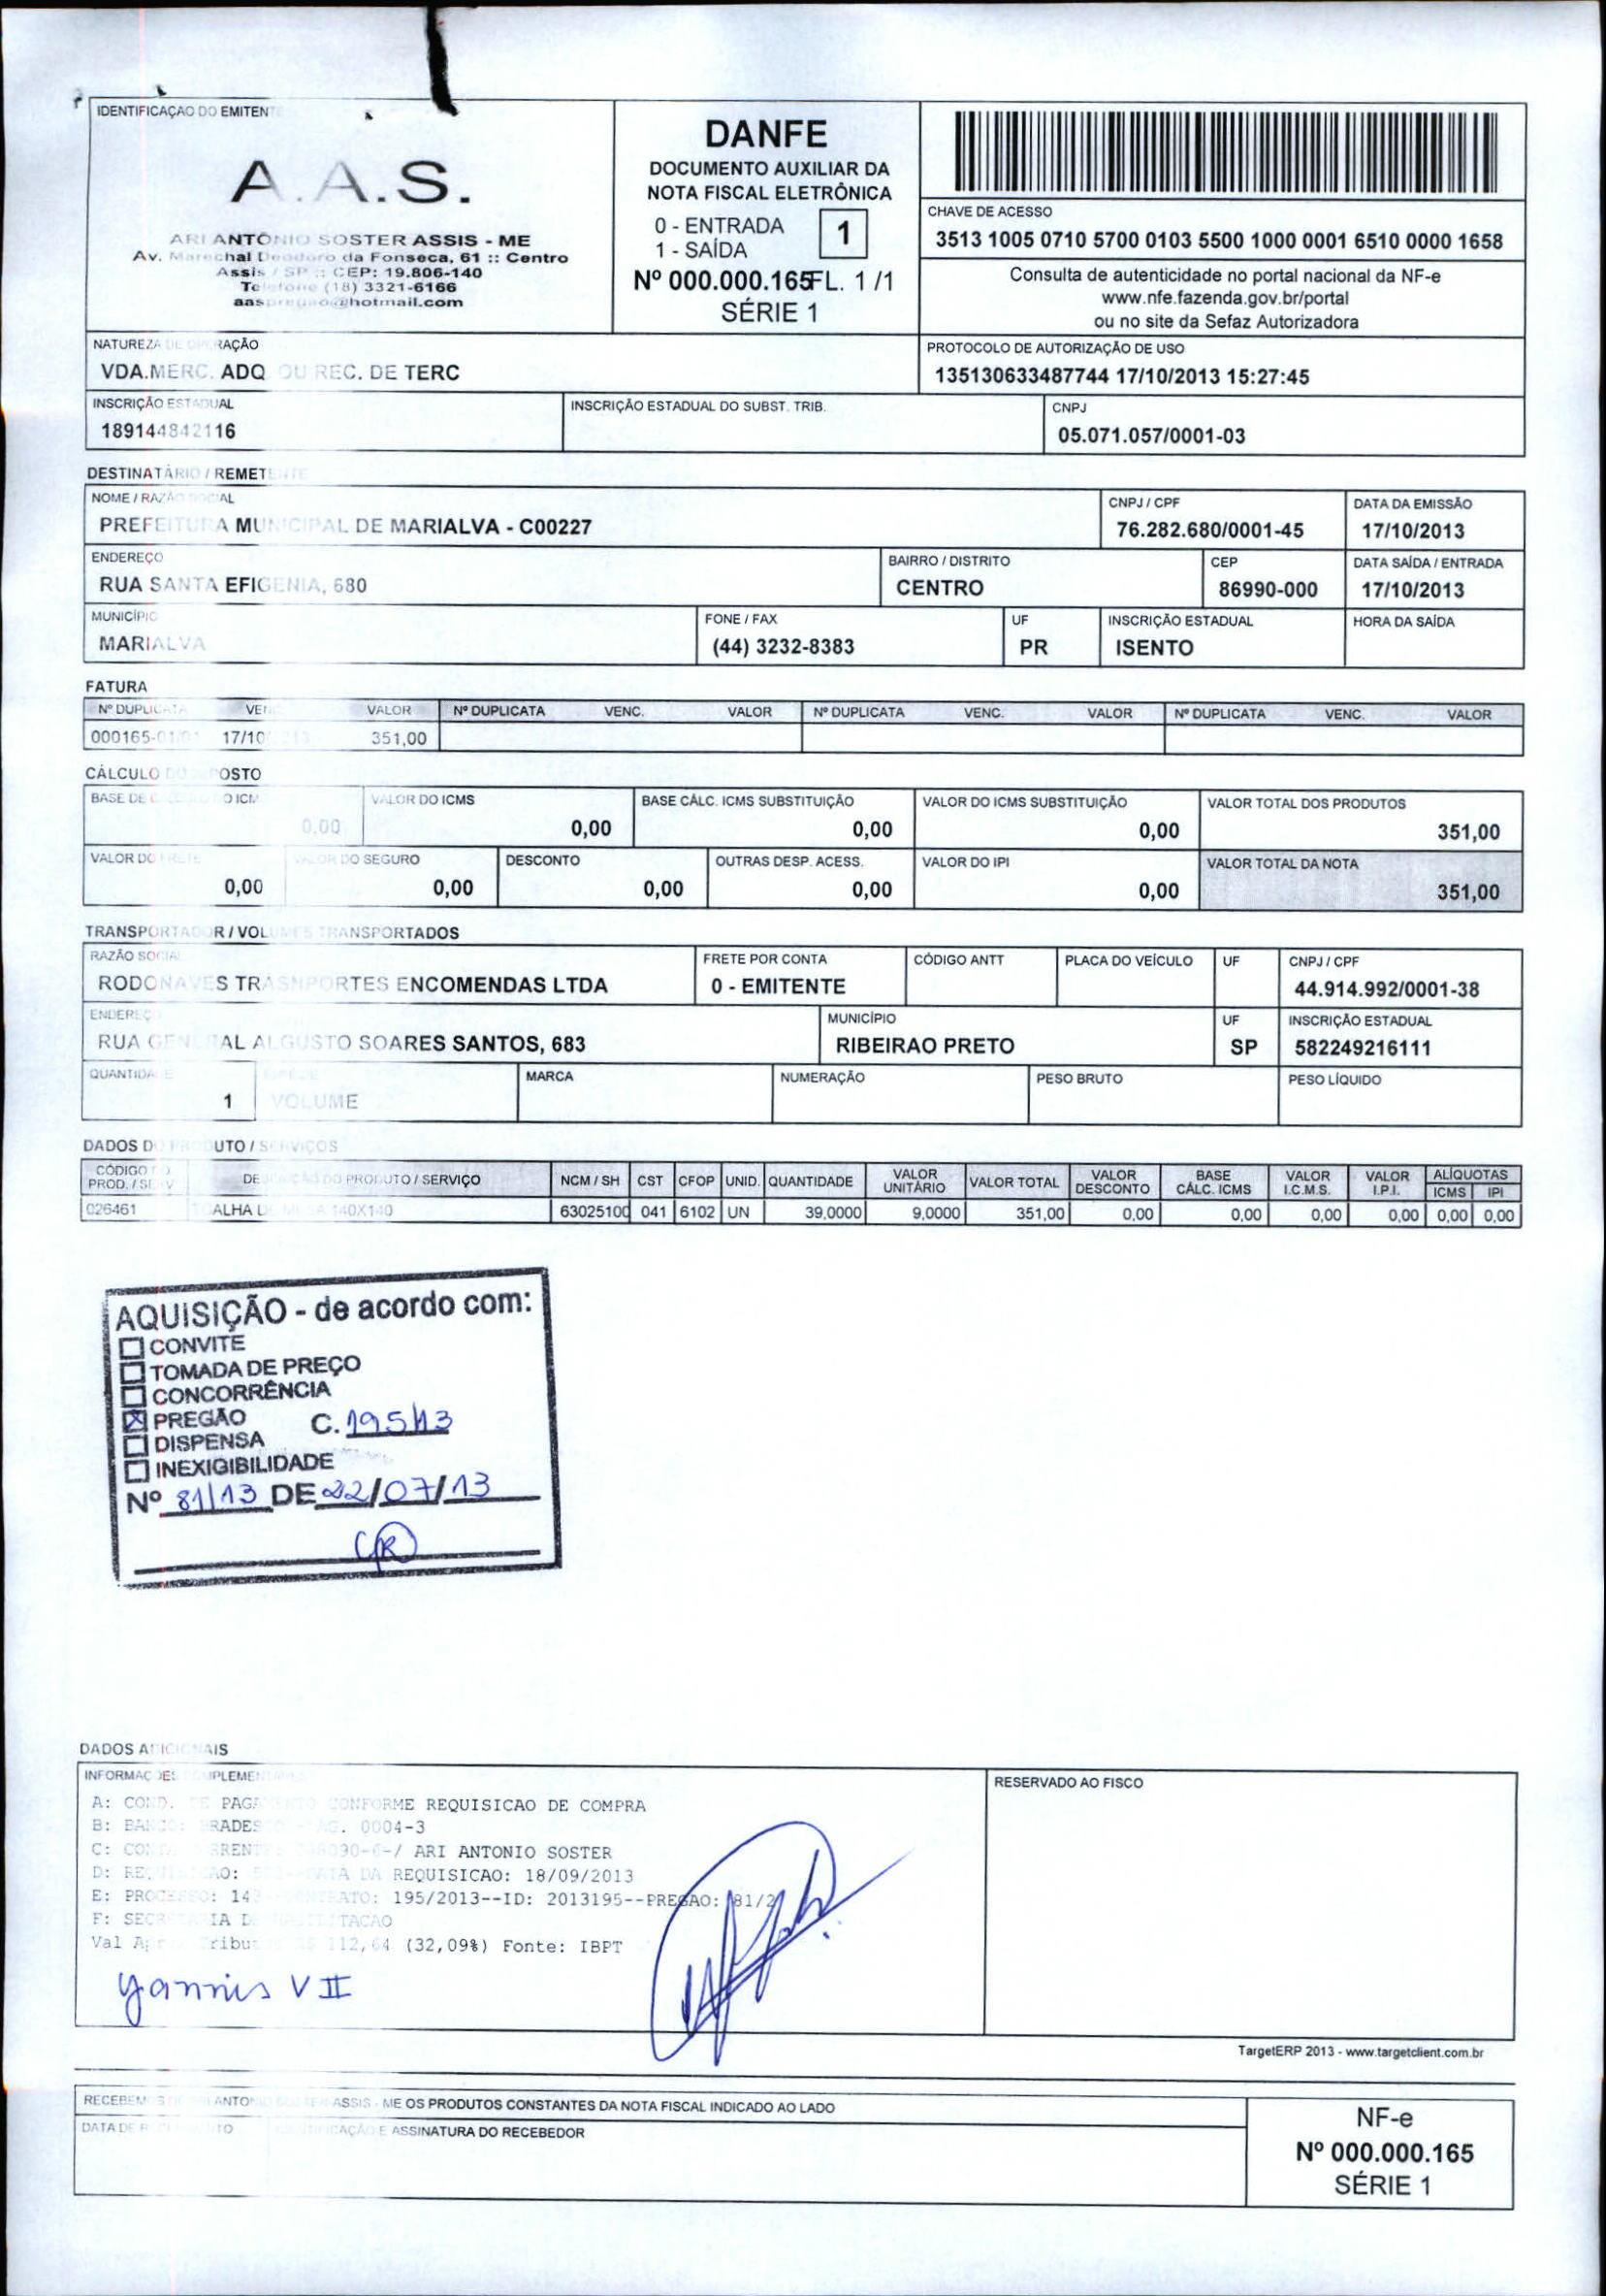 IDENTIFICAÇÃO DO EMITENTE
A.A.S.
ARI ANTÔNIO SOSTER ASSIS - ME
Av. Marechal Deodoro da Fonseca, 61 :: Centro
Assis / SP :: CEP: 19.806-140
Telefone (18) 3321-6166
aaspregao@hotmail.com
DANFE
DOCUMENTO AUXILIAR DA
NOTA FISCAL ELETRÔNICA
0 - ENTRADA
1 - SAÍDA
1
Nº 000.000.165 FL. 1 /1
SÉRIE 1
CHAVE DE ACESSO
3513 1005 0710 5700 0103 5500 1000 0001 6510 0000 1658
Consulta de autenticidade no portal nacional da NF-e
www.nfe.fazenda.gov.br/portal
ou no site da Sefaz Autorizadora
NATUREZA DE OPERAÇÃO
VDA.MERC. ADQ OU REC. DE TERC
PROTOCOLO DE AUTORIZAÇÃO DE USO
135130633487744 17/10/2013 15:27:45
INSCRIÇÃO ESTADUAL
189144842116
INSCRIÇÃO ESTADUAL DO SUBST. TRIB.
CNPJ
05.071.057/0001-03
DESTINATÁRIO / REMETENTE
NOME / RAZÃO SOCIAL
PREFEITURA MUNICIPAL DE MARIALVA - C00227
CNPJ / CPF
76.282.680/0001-45
DATA DA EMISSÃO
17/10/2013
ENDEREÇO
RUA SANTA EFIGENIA, 680
BAIRRO / DISTRITO
CENTRO
CEP
86990-000
DATA SAÍDA / ENTRADA
17/10/2013
MUNICÍPIO
MARIALVA
FONE / FAX
(44) 3232-8383
UF
PR
INSCRIÇÃO ESTADUAL
ISENTO
HORA DA SAÍDA
FATURA
Nº DUPLICATA VENC. VALOR Nº DUPLICATA VENC. VALOR Nº DUPLICATA VENC. VALOR Nº DUPLICATA VENC. VALOR
000165-01/01 17/10/2013 351,00
CÁLCULO DO IMPOSTO
BASE DE CÁLCULO DO ICMS
0,00
VALOR DO ICMS
0,00
BASE CÁLC. ICMS SUBSTITUIÇÃO
0,00
VALOR DO ICMS SUBSTITUIÇÃO
0,00
VALOR TOTAL DOS PRODUTOS
351,00
VALOR DO FRETE
0,00
VALOR DO SEGURO
0,00
DESCONTO
0,00
OUTRAS DESP. ACESS.
0,00
VALOR DO IPI
0,00
VALOR TOTAL DA NOTA
351,00
TRANSPORTADOR / VOLUMES TRANSPORTADOS
RAZÃO SOCIAL
RODONAVES TRASNPORTES ENCOMENDAS LTDA
FRETE POR CONTA
0 - EMITENTE
CÓDIGO ANTT
PLACA DO VEÍCULO
UF
CNPJ / CPF
44.914.992/0001-38
ENDEREÇO
RUA GENERAL AUGUSTO SOARES SANTOS, 683
MUNICÍPIO
RIBEIRAO PRETO
UF
SP
INSCRIÇÃO ESTADUAL
582249216111
QUANTIDADE
1
ESPÉCIE
VOLUME
MARCA
NUMERAÇÃO
PESO BRUTO
PESO LÍQUIDO
DADOS DO PRODUTO / SERVIÇOS
CÓDIGO DO PROD. / SERV. DESCRIÇÃO DO PRODUTO / SERVIÇO NCM / SH CST CFOP UNID. QUANTIDADE VALOR UNITÁRIO VALOR TOTAL VALOR DESCONTO BASE CÁLC. ICMS VALOR I.C.M.S. VALOR I.P.I. ALÍQUOTAS ICMS IPI
026461 TOALHA DE MESA 140X140 63025100 041 6102 UN 39,0000 9,0000 351,00 0,00 0,00 0,00 0,00 0,00 0,00
AQUISIÇÃO - de acordo com:
CONVITE
TOMADA DE PREÇO
CONCORRÊNCIA
PREGÃO C. 195/13
DISPENSA
INEXIGIBILIDADE
Nº 81/13 DE 22/07/13
DADOS ADICIONAIS
INFORMAÇÕES COMPLEMENTARES
A: COND. DE PAGAMENTO CONFORME REQUISICAO DE COMPRA
B: BANCO: BRADESCO - AG. 0004-3
C: CONTA CORRENTE: / ARI ANTONIO SOSTER
D: REQUISICAO: DATA DA REQUISICAO: 18/09/2013
E: PROCESSO: 14 CONTRATO: 195/2013--ID: 2013195--PREGAO: 81/2
F: SECRETARIA DE
Val Aprox Tributos R$ 112,64 (32,09%) Fonte: IBPT
yannis VII
RESERVADO AO FISCO
TargetERP 2013 - www.targetclient.com.br
RECEBEMOS DE ARI ANTONIO SOSTER ASSIS - ME OS PRODUTOS CONSTANTES DA NOTA FISCAL INDICADO AO LADO
DATA DE RECEBIMENTO
IDENTIFICAÇÃO E ASSINATURA DO RECEBEDOR
NF-e
Nº 000.000.165
SÉRIE 1